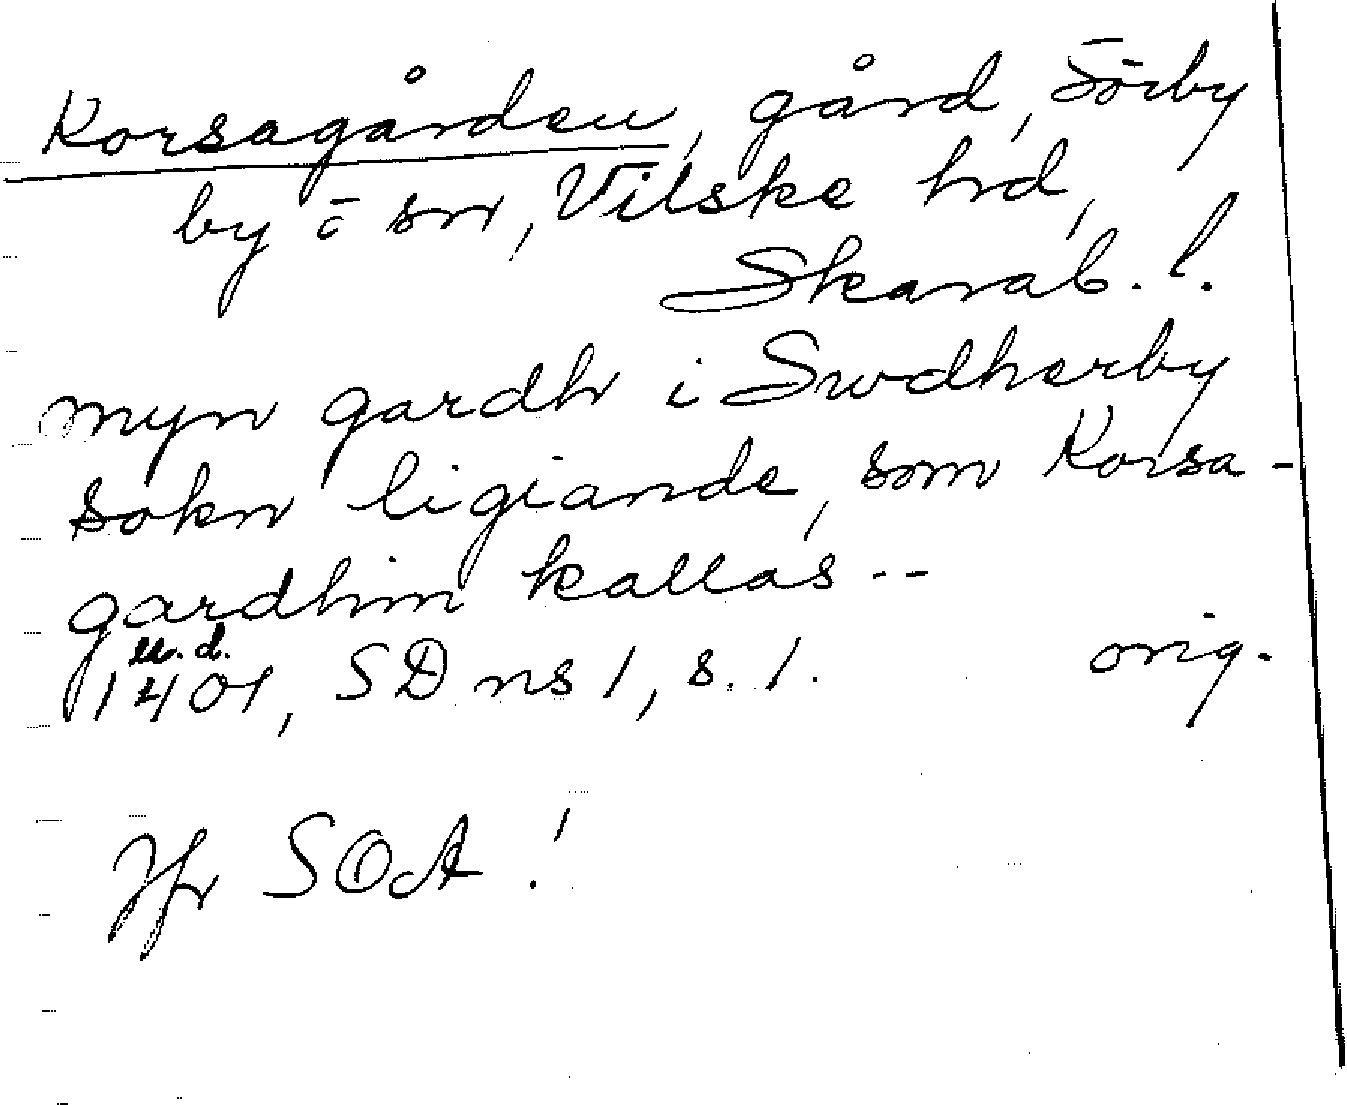 Korsagården, gård, Sörby
by o sn, Vilske hd,
Skarab. l.
myn gardh i Swdherby
sokn ligiande, som Korsa-
gardhin kallas --
u. d.
1401, SD ns 1, s. 1. orig.
Jfr SOA !